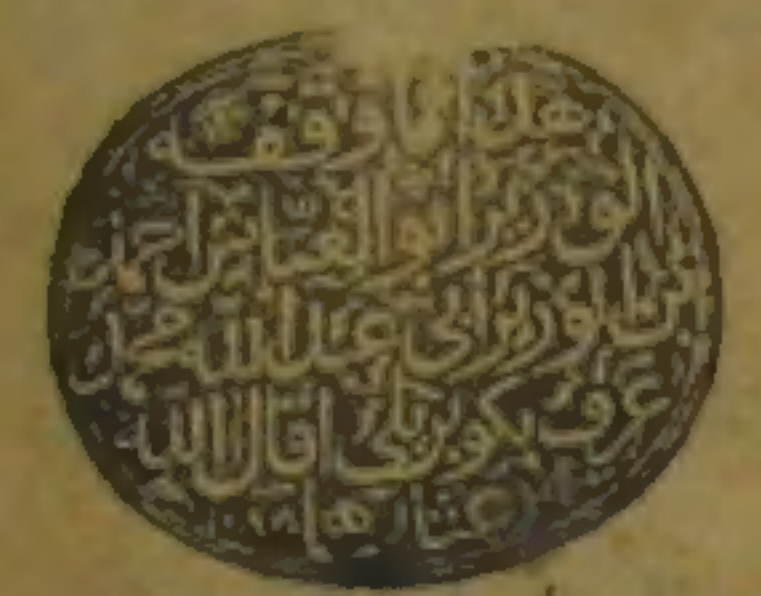 هذا ما وقفه
الوزير ابو العباس احمد
بن الوزير ابى عبد الله محمد
عرف بكوبريلى اقال الله
عثارهما